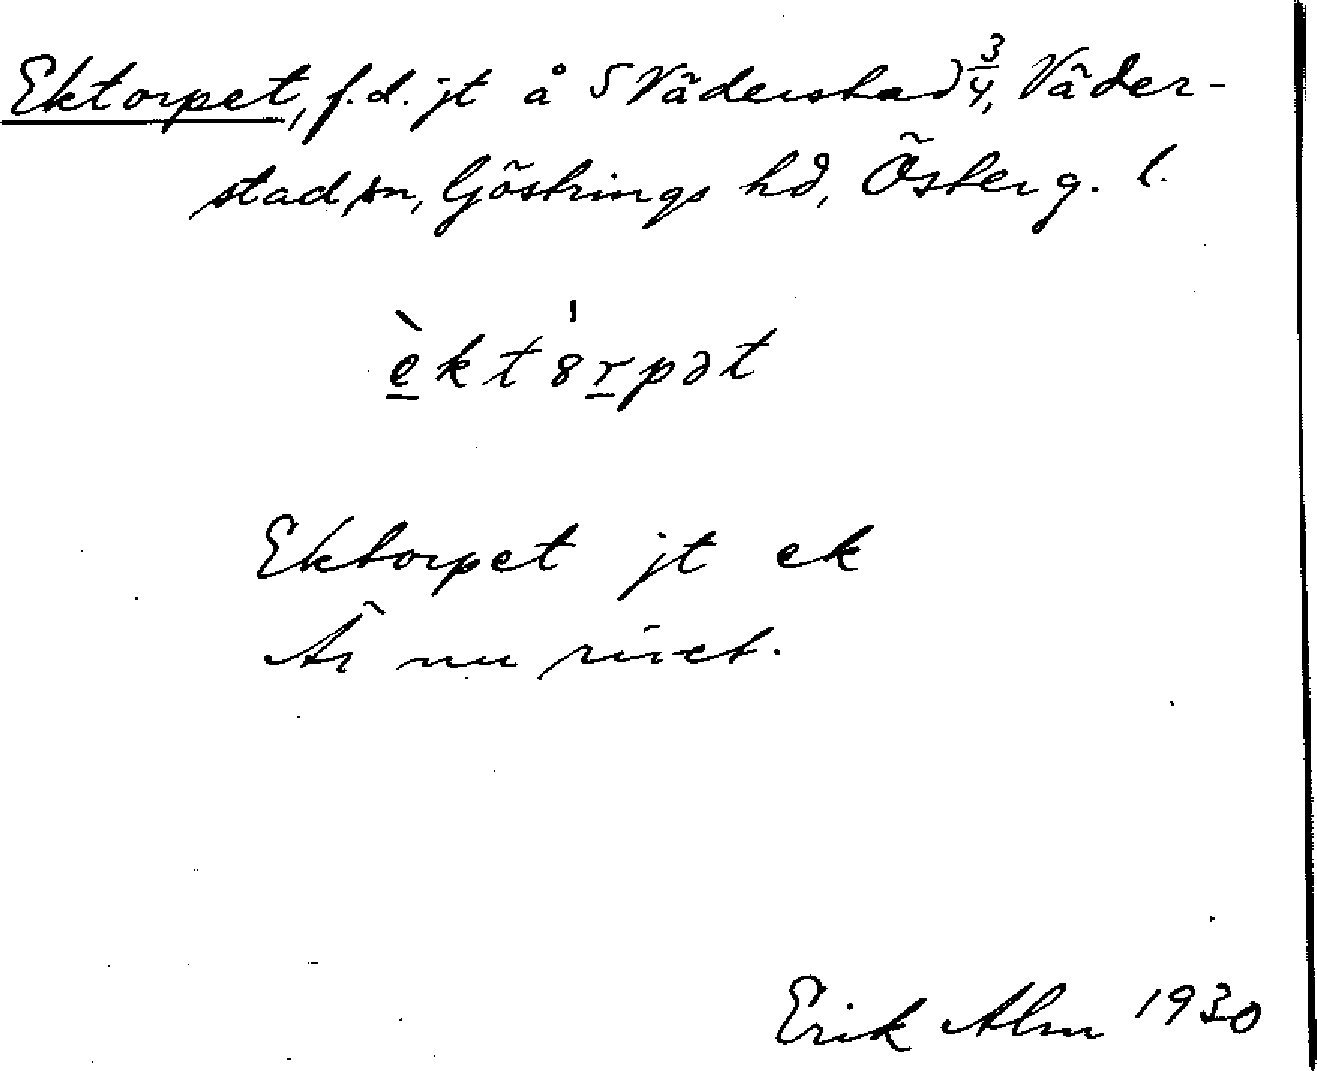 Ektorpet, f.d. jt å 5 Väderstad 3/4, Väder-
stad sn, Göstrings hd, Österg. l.
è̠kt8̍r̠pət
Ektorpet jt ek
Är nu rivet.
Erik Alm 1930